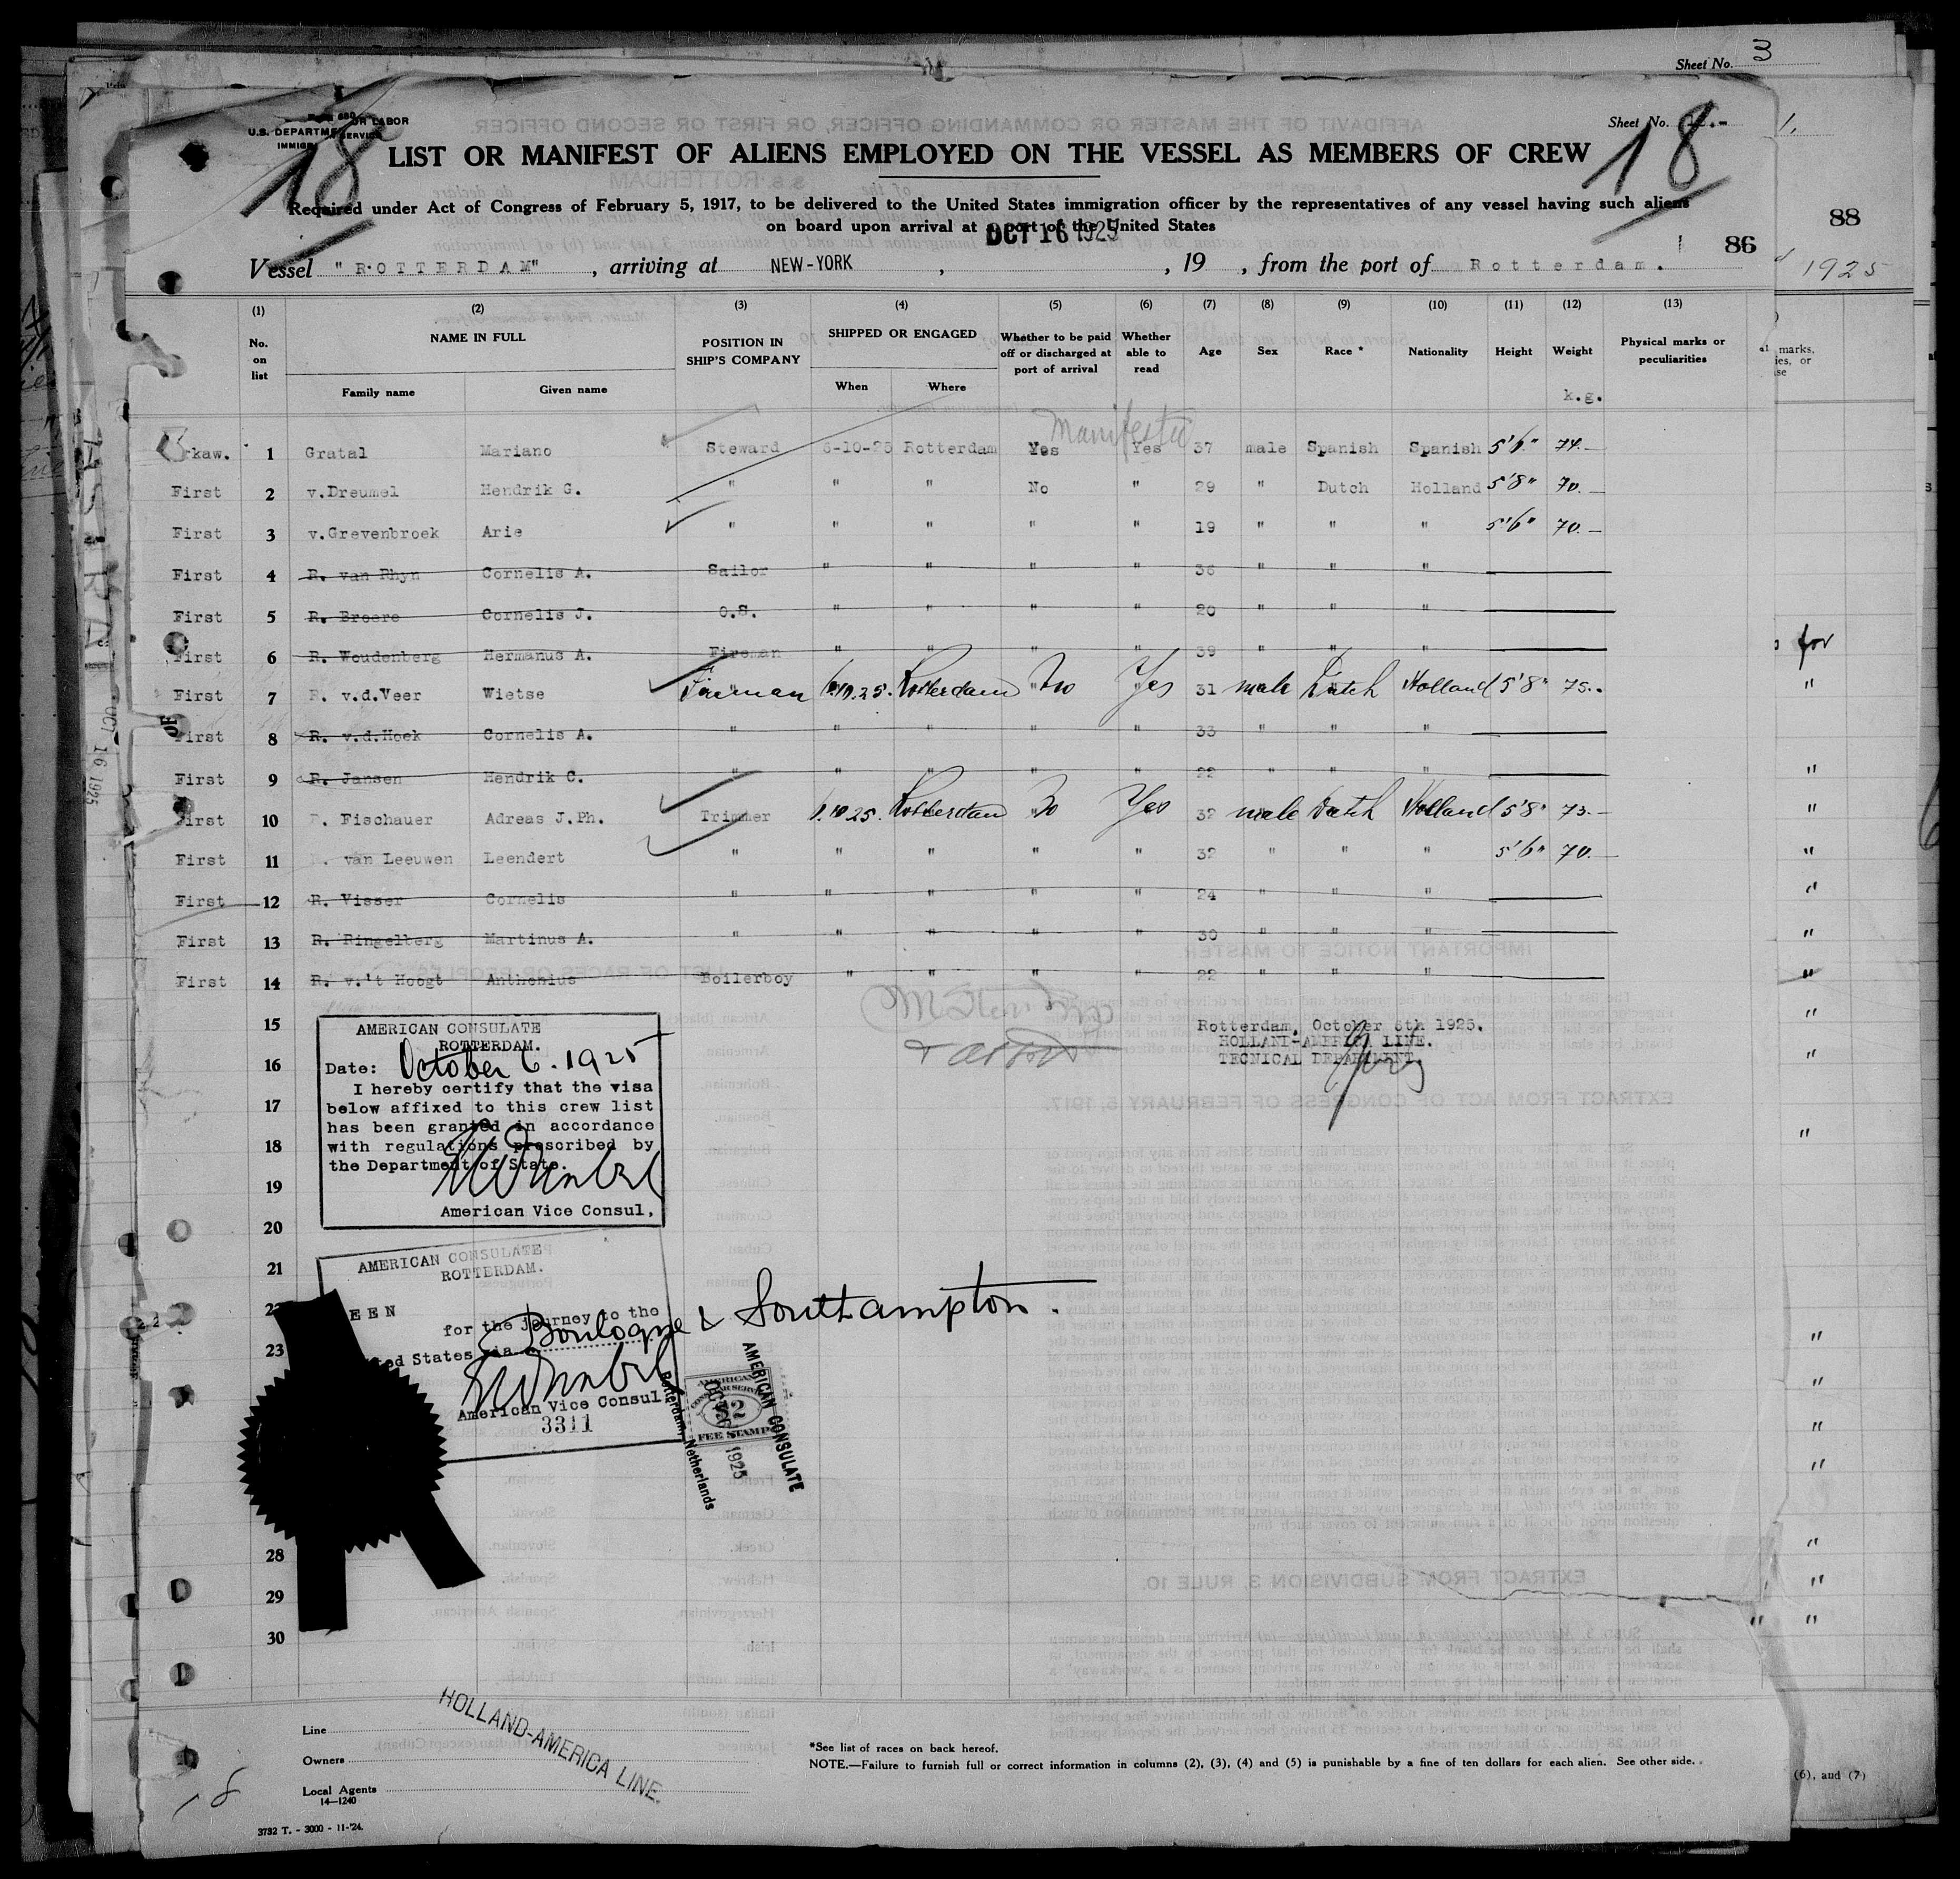 Sheet No. 3
U.S. DEPARTMENT OF LABOR
IMMIGRATION SERVICE
18
Sheet No.
18
LIST OR MANIFEST OF ALIENS EMPLOYED ON THE VESSEL AS MEMBERS OF CREW
Required under Act of Congress of February 5, 1917, to be delivered to the United States immigration officer by the representatives of any vessel having such aliens
on board upon arrival at a port of the United States
OCT 16 1925
88
86
Vessel "ROTTERDAM", arriving at NEW-YORK, , 19 , from the port of Rotterdam.
1925
(1) (2) (3) (4) (5) (6) (7) (8) (9) (10) (11) (12) (13)
No. on list NAME IN FULL POSITION IN SHIP'S COMPANY SHIPPED OR ENGAGED Whether to be paid off or discharged at port of arrival Whether able to read Age Sex Race * Nationality Height Weight Physical marks or peculiarities
Family name Given name When Where k.g.
Manifested
rkaw. 1 Gratal Mariano Steward 6-10-25 Rotterdam Yes Yes 37 male Spanish Spanish 5'6" 74.—
First 2 v.Dreumel Hendrik G. " " " No " 29 " Dutch Holland 5'8" 70.—
First 3 v.Grevenbroek Arie " " " " " 19 " " " 5'6" 70.—
First 4 R. van Rhyn Cornelis A. Sailor " " " " 36 " " "
First 5 R. Broere Cornelis J. O.S. " " " " 20 " " "
First 6 R. Woudenberg Hermanus A. Fireman " " " " 39 " " "
First 7 R. v.d.Veer Wietse Fireman 6.10.25. Rotterdam No Yes 31 male Dutch Holland 5'8" 75.-
First 8 R. v.d.Hoek Cornelis A. " " " " " 33 " " "
First 9 R. Jansen Hendrik C. " " " " " 22 " " "
First 10 R. Fischauer Adreas J.Ph. Trimmer 6.10.25. Rotterdam No Yes 32 male Dutch Holland 5'8" 73.—
First 11 R. van Leeuwen Leendert " " " " " 32 " " " 5'6" 70.—
First 12 R. Visser Cornelis " " " " " 24 " " "
First 13 R. Ringelberg Martinus A. " " " " " 30 " " "
First 14 R. v.'t Hoogt Anthonius Boilerboy " " " " 22 " " "
15
16
17
18
19
20
21
23
28
29
30
AMERICAN CONSULATE
ROTTERDAM.
Date: October 6. 1925
I hereby certify that the visa
below affixed to this crew list
has been granted in accordance
with regulations prescribed by
the Department of State.
American Vice Consul,
Rotterdam, October 6th 1925.
HOLLAND-AMERICA LINE.
TECNICAL DEPARTMENT.
AMERICAN CONSULATE
ROTTERDAM.
EEN
for the journey to the
ted States via Boulogne & Southampton.
American Vice Consul.
3311
AMERICAN CONSULATE
Rotterdam, Netherlands
OCT 6 1925
AMERICAN
CONSULAR SERVICE
2
FEE STAMP
Line
Owners
Local Agents
HOLLAND-AMERICA LINE.
14—1240
3732 T. - 3000 - 11-'24.
18
*See list of races on back hereof.
NOTE.—Failure to furnish full or correct information in columns (2), (3), (4) and (5) is punishable by a fine of ten dollars for each alien. See other side.
(6), and (7)
OCT 16 1925
for